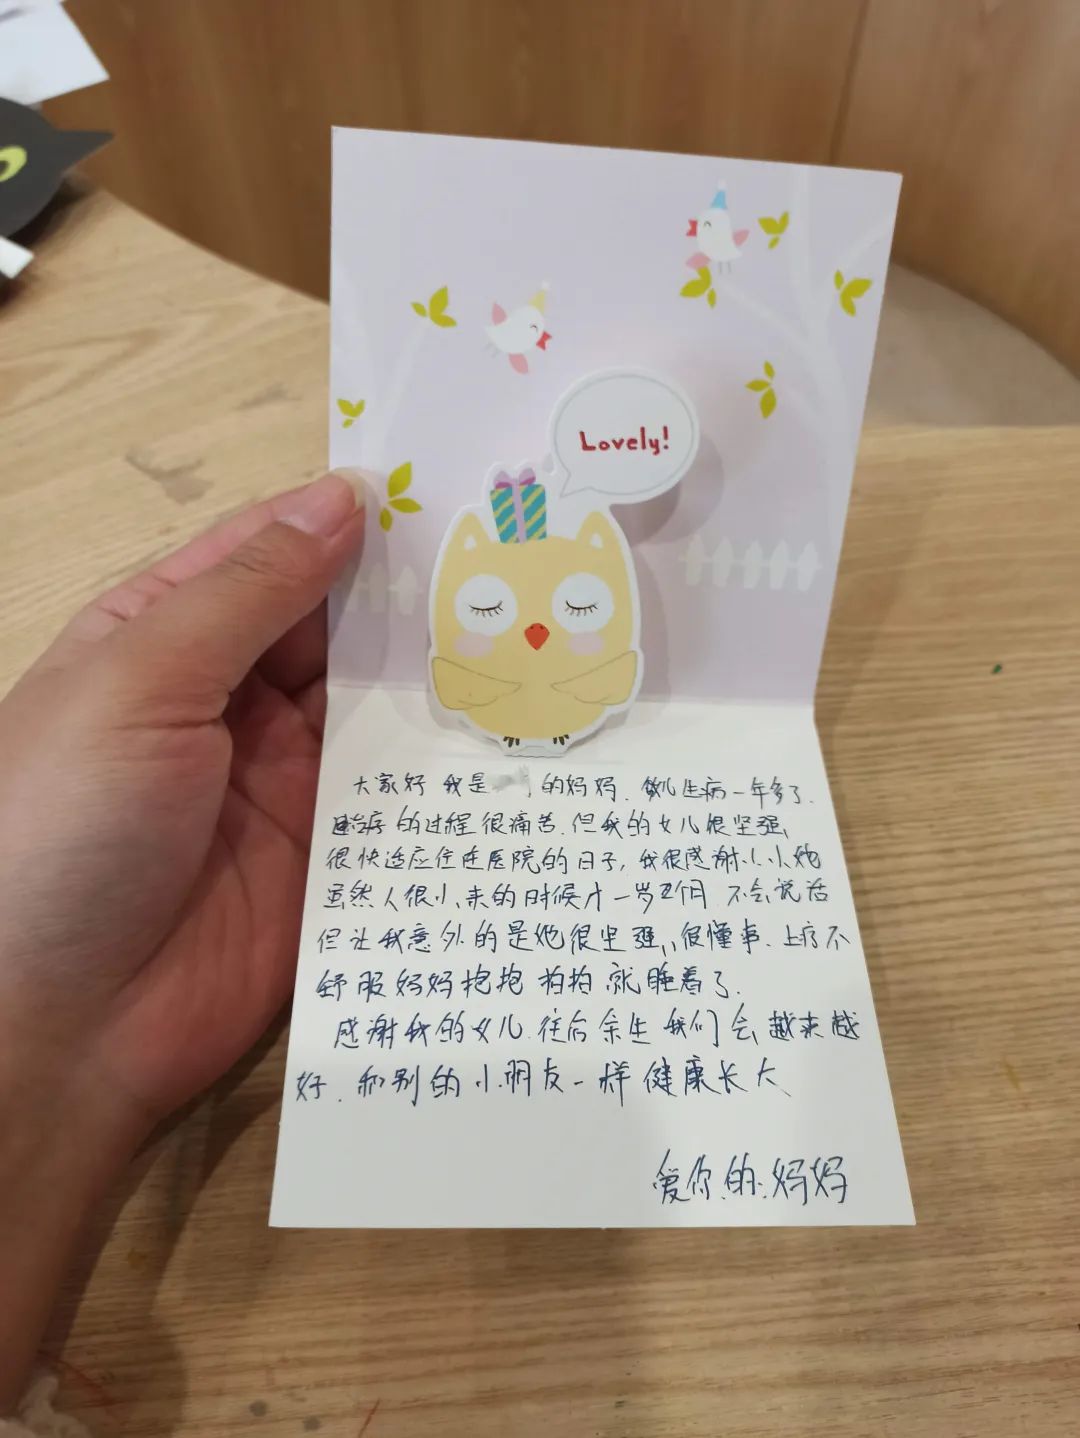 Lovely!
大家好 我是 的妈妈. 生病一年多了.
治疗的过程很痛苦.但我的女儿很坚强,
很快适应住在医院的日子,我很感谢小小她
虽然人很小,来的时候才一岁五个月 不会说话
但让我意外的是她很坚强,,很懂事.上疗不
舒服妈妈抱抱 拍拍 就睡着了.
感谢我的女儿.往后余生 我们会越来越
好.和别的小朋友一样健康长大
爱你.的.妈妈